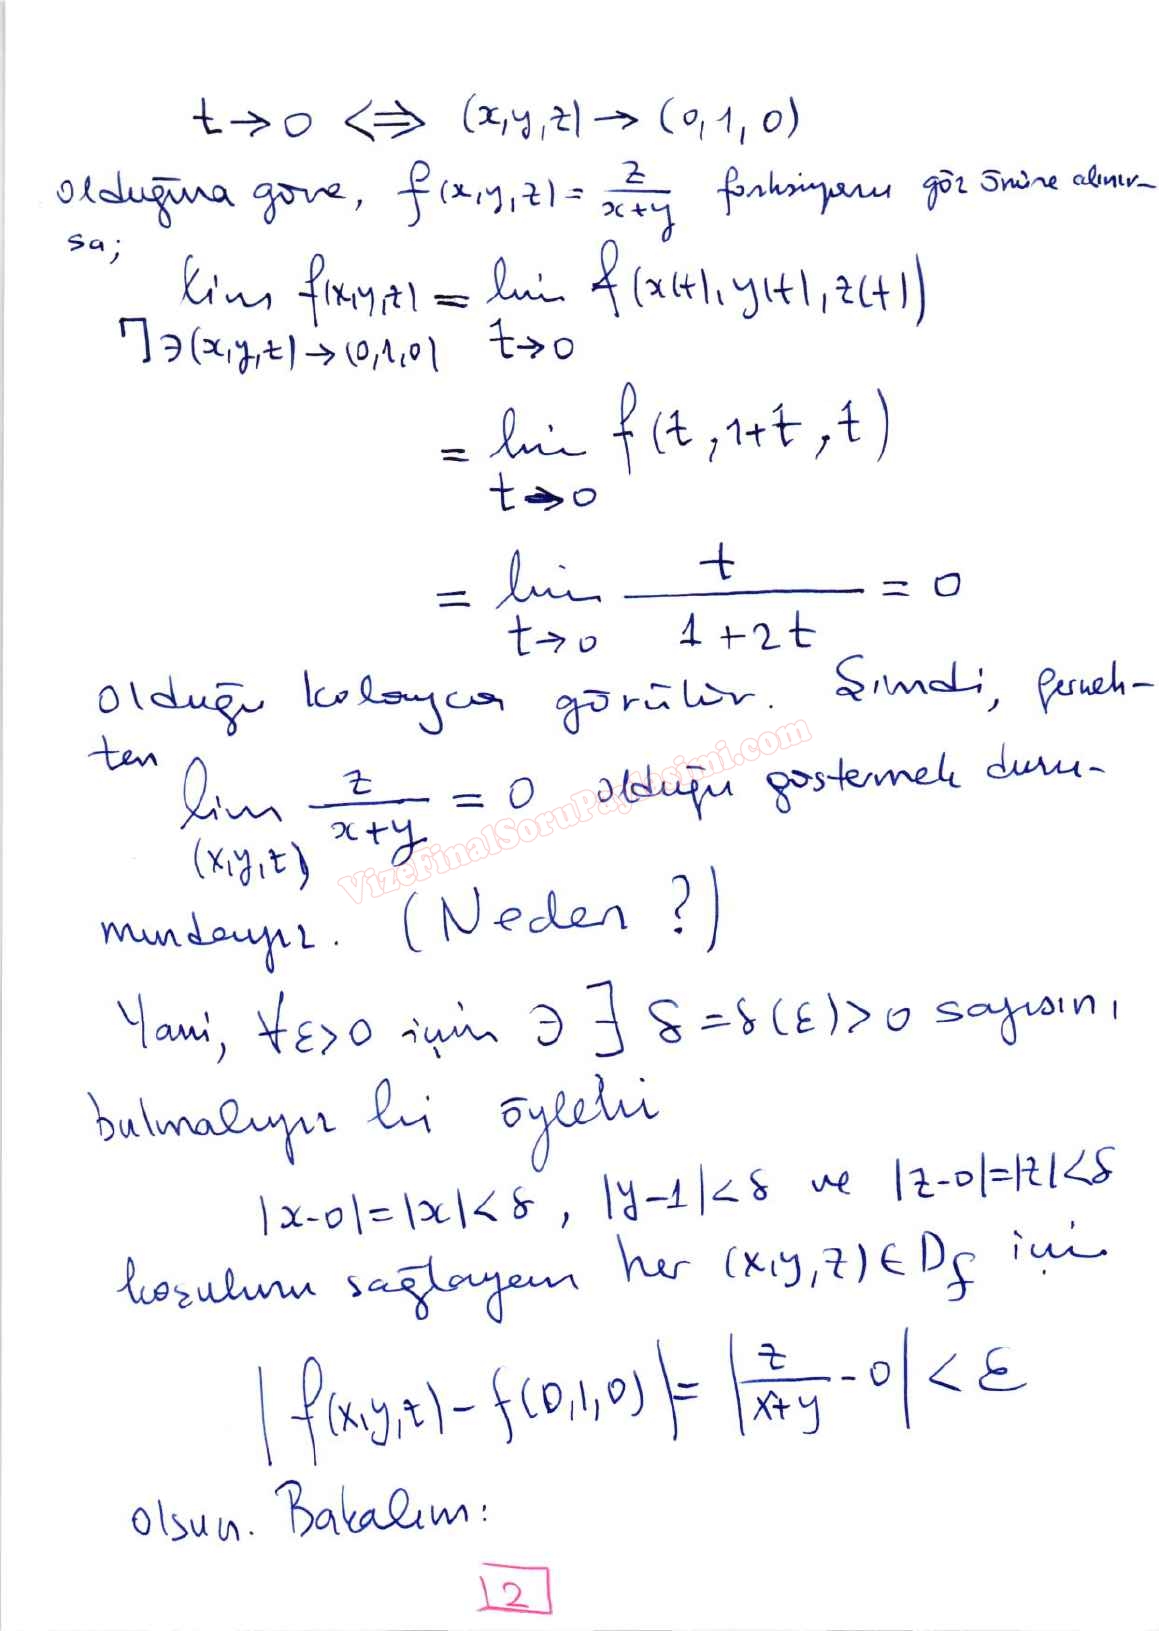 t → 0 ⇔ (x,y,z) → (0,1,0)
olduğuna göre, f(x,y,z) = z/(x+y) fonksiyonu göz önüne alınır-
sa;
lim f(x,y,z) = lim f(x(t), y(t), z(t))
Γ∋(x,y,z) → (0,1,0) t→0
= lim f(t, 1+t, t)
t→0
= lim t/(1+2t) = 0
t→0
olduğu kolayca görülür. Şimdi, gerçek-
ten
lim z/(x+y) = 0 olduğu göstermek duru-
(x,y,z)
mundayız. (Neden?)
Yani, ∀ε>0 için ∋ ∃ δ = δ(ε) > 0 sayısını
bulmalıyız ki öyleki
|x-0| = |x| < δ, |y-1| < δ ve |z-0| = |z| < δ
koşulunu sağlayan her (x,y,z) ∈ D_f için
|f(x,y,z) - f(0,1,0)| = |z/(x+y) - 0| < ε
olsun. Bakalım:
2
VizeFinalSoruPaylasimi.com